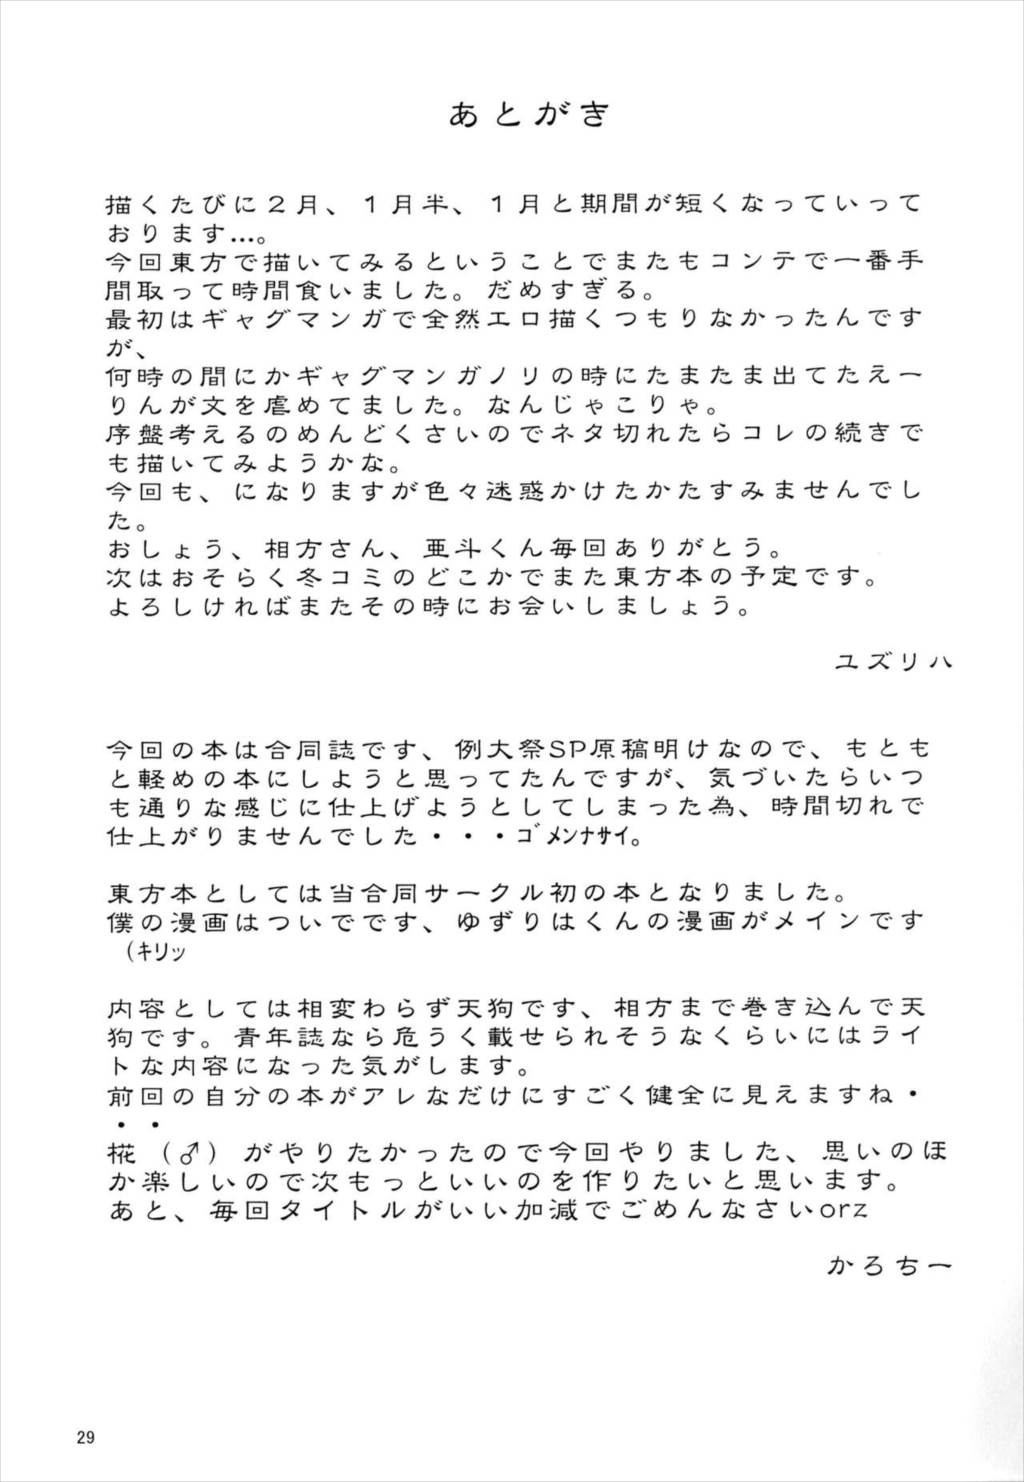 あとがき
描くたびに２月、１月半、１月と期間が短くなっていって
おります…。
今回東方で描いてみるということでまたもコンテで一番手
間取って時間食いました。だめすぎる。
最初はギャグマンガで全然エロ描くつもりなかったんです
が、
何時の間にかギャグマンガノリの時にたまたま出てたえー
りんが文を虐めてました。なんじゃこりゃ。
序盤考えるのめんどくさいのでネタ切れたらコレの続きで
も描いてみようかな。
今回も、になりますが色々迷惑かけたかたすみませんでし
た。
おしょう、相方さん、亜斗くん毎回ありがとう。
次はおそらく冬コミのどこかでまた東方本の予定です。
よろしければまたその時にお会いしましょう。
ユズリハ
今回の本は合同誌です、例大祭SP原稿明けなので、もとも
と軽めの本にしようと思ってたんですが、気づいたらいつ
も通りな感じに仕上げようとしてしまった為、時間切れで
仕上がりませんでした・・・ｺﾞﾒﾝﾅｻｲ。
東方本としては当合同サークル初の本となりました。
僕の漫画はついでです、ゆずりはくんの漫画がメインです
（ｷﾘｯ
内容としては相変わらず天狗です、相方まで巻き込んで天
狗です。青年誌なら危うく載せられそうなくらいにはライ
トな内容になった気がします。
前回の自分の本がアレなだけにすごく健全に見えますね・
・・
椛（♂）がやりたかったので今回やりました、思いのほ
か楽しいので次もっといいのを作りたいと思います。
あと、毎回タイトルがいい加減でごめんなさいorz
かろちー
29